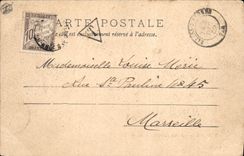 CARTE POSTALE
Ce côté est exclusivement réservé à l'adresse.
10
Mademoiselle Louise Marie
Rue St Pauline Nº 45
Marseille